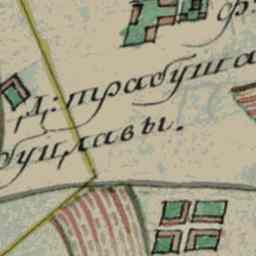 Д: трабуша
буцлавы.